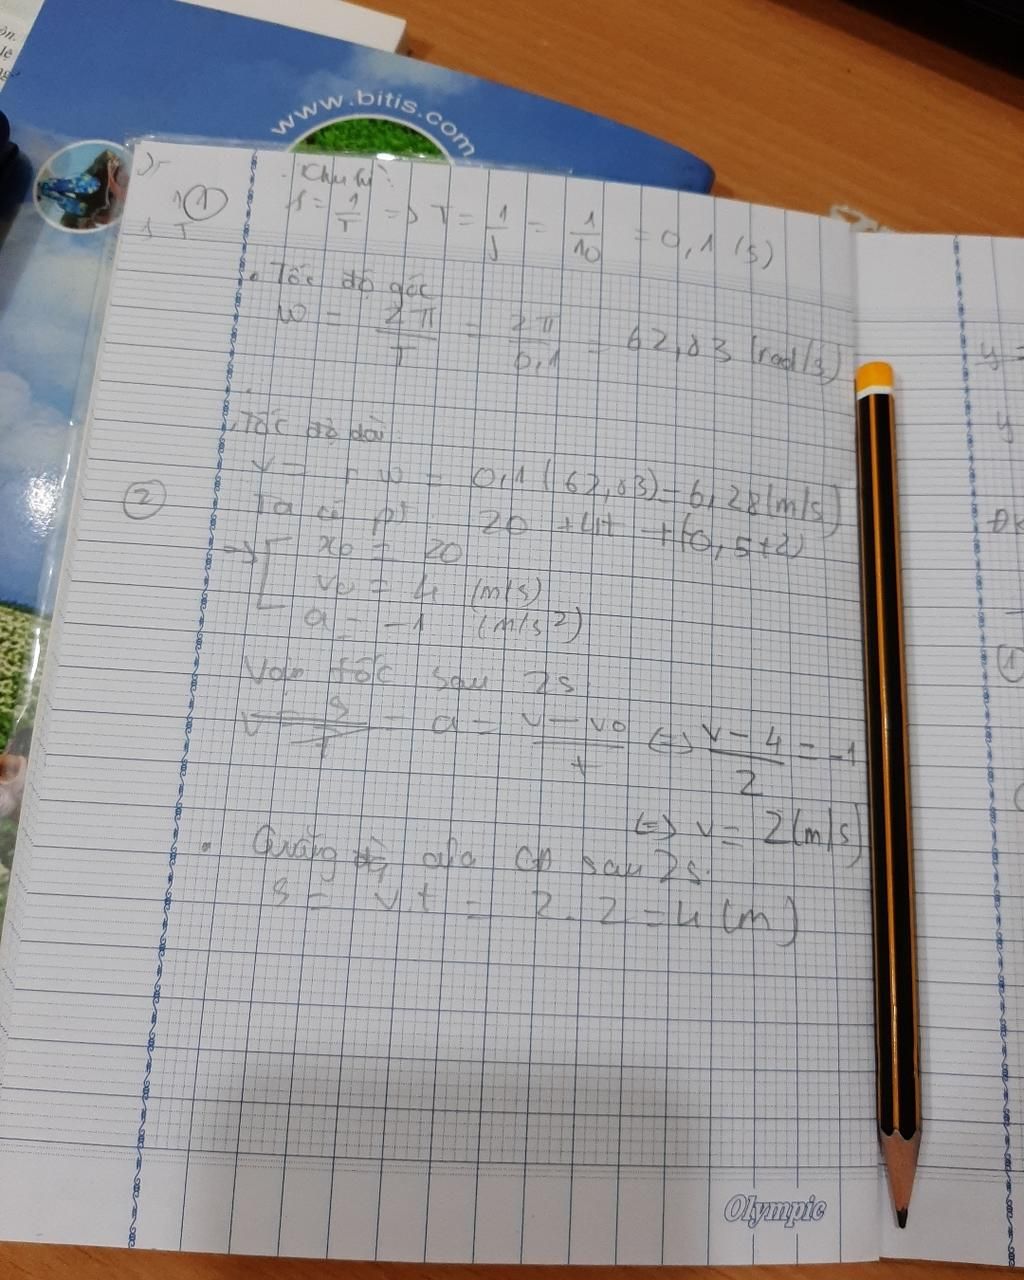 ôn.
lê
www.bitis.com
)-
1
1 T
①
Chu kì:
f = 1/T => T = 1/f = 1/10 = 0,1 (s)
. Tốc độ góc
ω = 2π/T = 2π/0,1 = 62,83 (rad/s)
. Tốc độ dài
v = r ω = 0,1 (62,83) = 6,28 (m/s)
② Ta có pt 20 + 4t + (0,5t2)
=> [ x0 = 20
v0 = 4 (m/s)
a = -1 (m/s²)
Vận tốc sau 2s.
a = v - v0/t <=> v - 4/2 = -1
<=> v = 2 (m/s)
. Quãng của CĐ sau 2s.
s = v.t = 2.2 = 4 (m)
Olympic
y =
y
ĐK
①